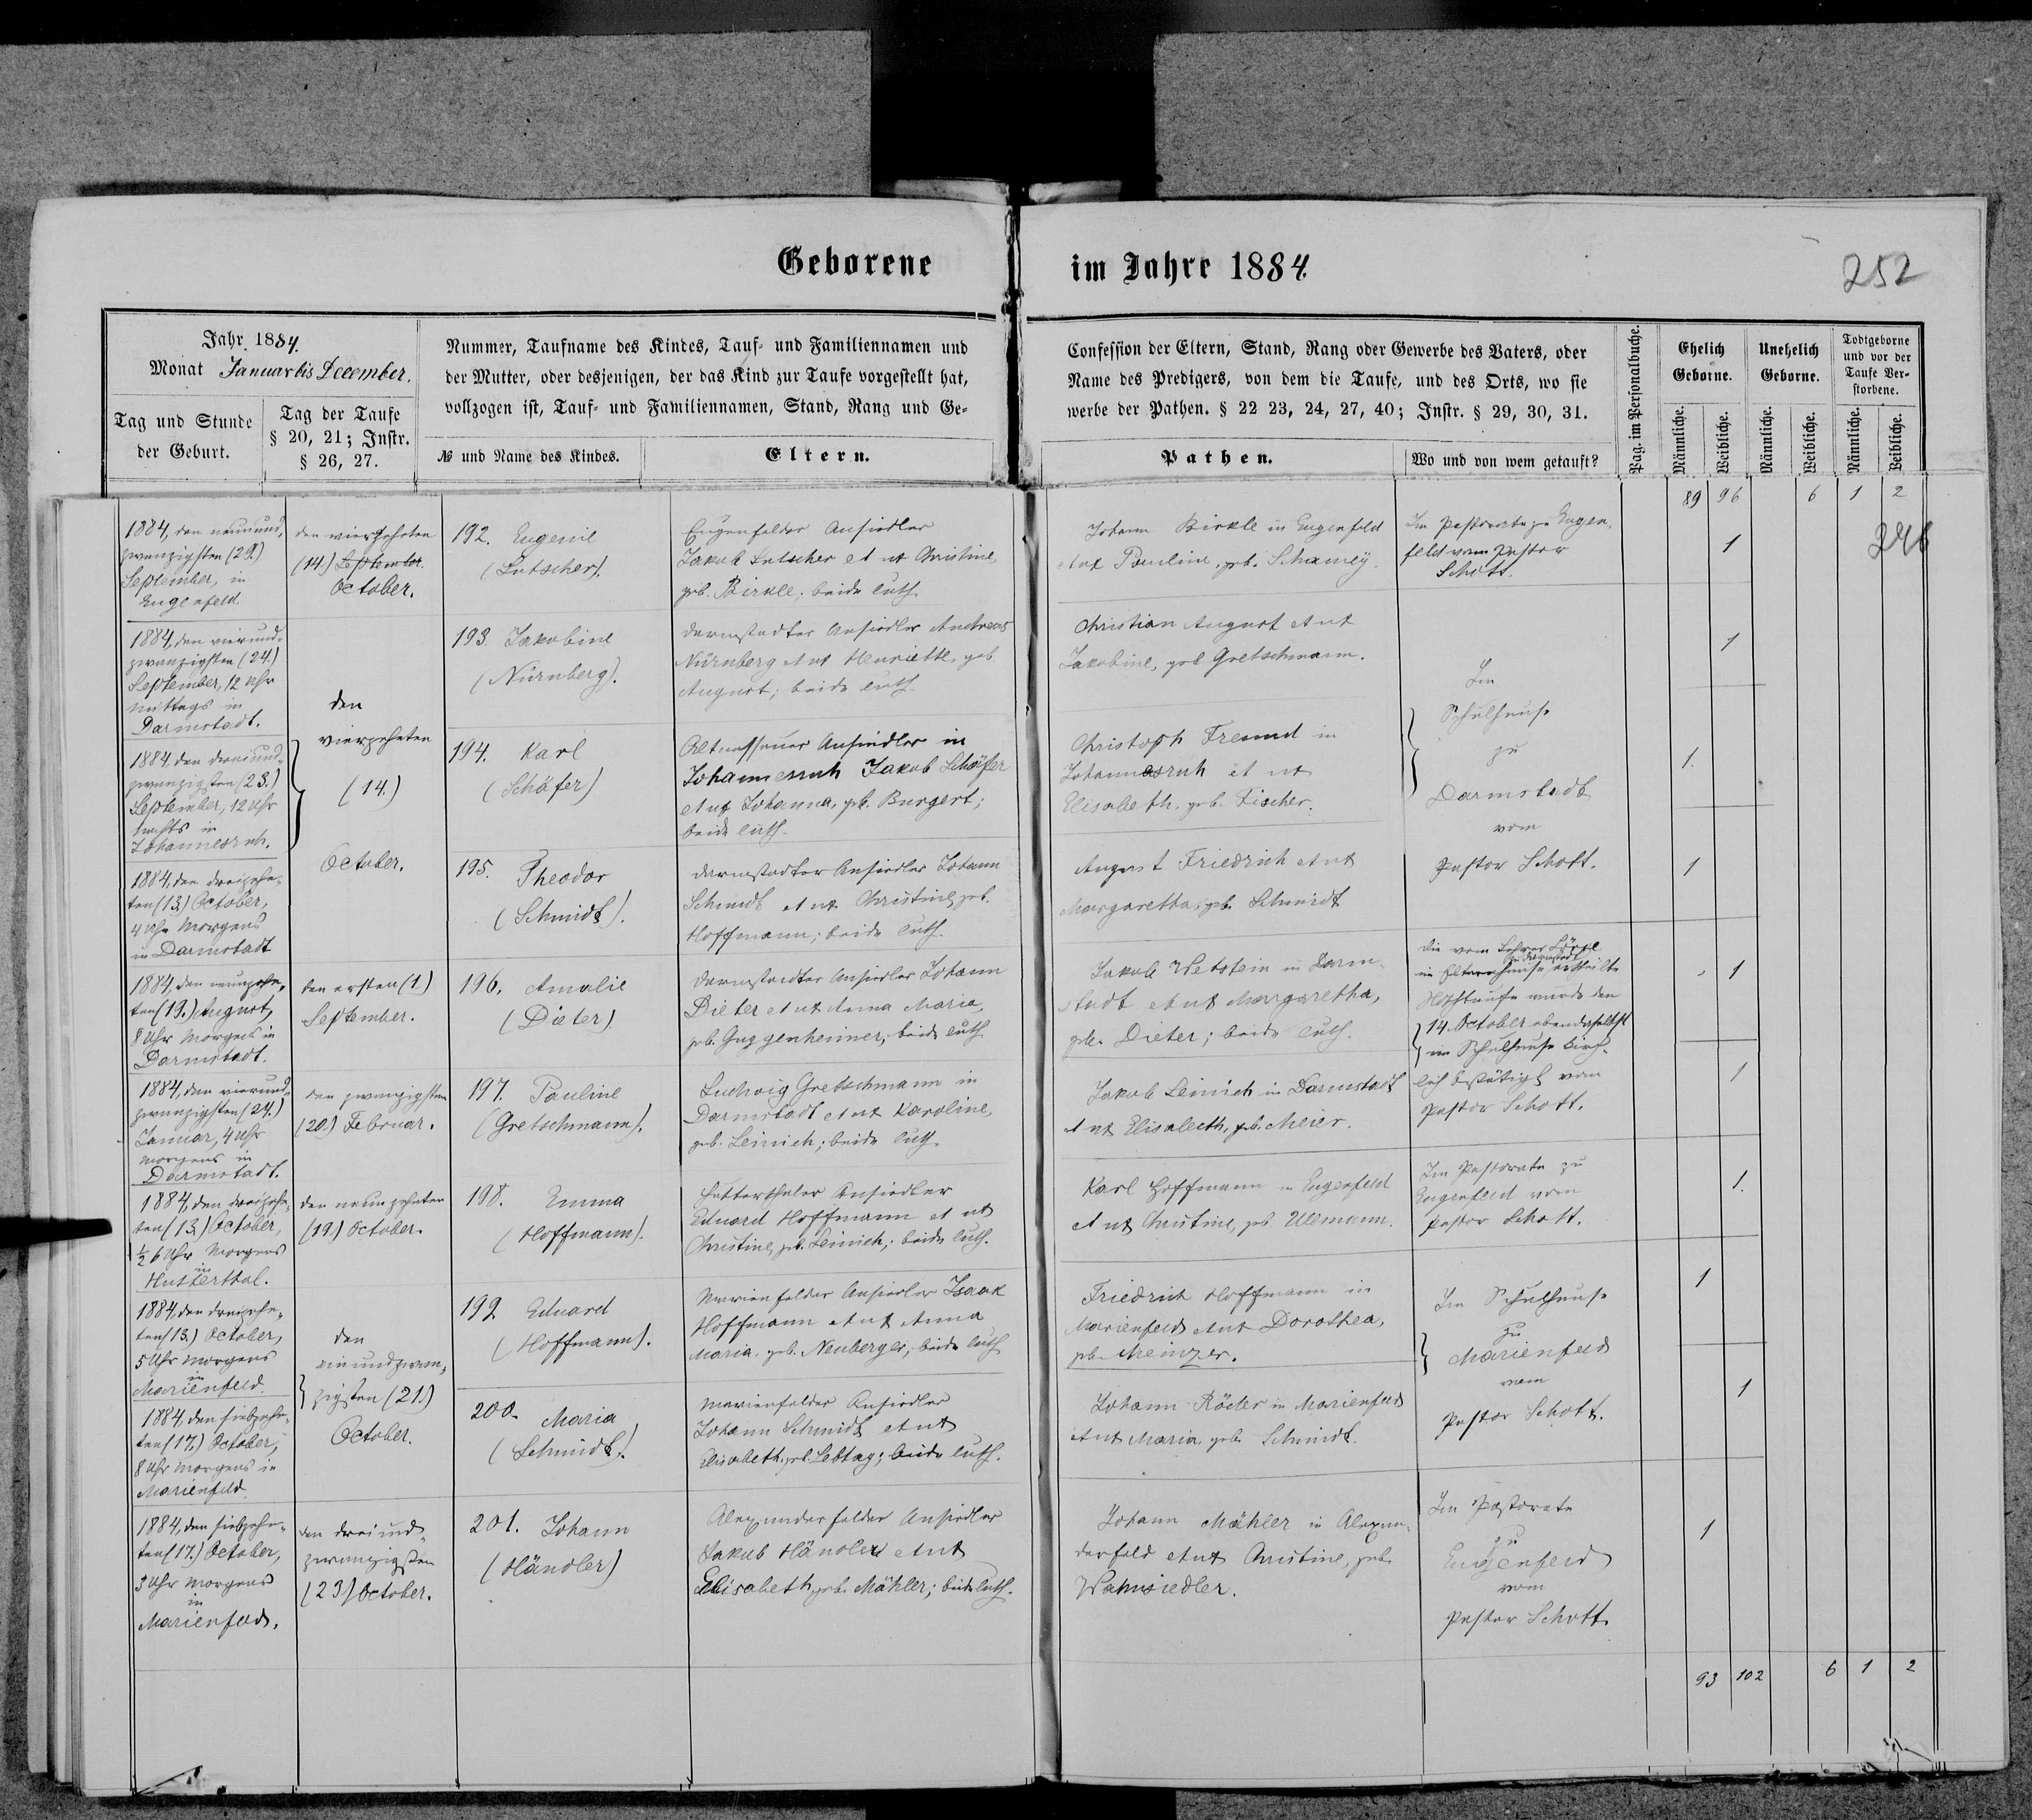 Geborene im Jahre 1884.
252
Jahr 1884.
Monat Januar bis December.
Tag und Stunde
der Geburt.
Tag der Taufe
§ 20, 21; Instr.
§ 26, 27.
Nummer, Taufname des Kindes, Tauf- und Familiennamen und
der Mutter, oder desjenigen, der das Kind zur Taufe vorgestellt hat,
vollzogen ist, Tauf- und Familiennamen, Stand, Rang und Ge-
№ und Name des Kindes.
Eltern.
Confession der Eltern, Stand, Rang oder Gewerbe des Vaters, oder
Name des Predigers, von dem die Taufe, und des Orts, wo sie
werbe der Pathen. § 22 23, 24, 27, 40; Instr. § 29, 30, 31.
Pathen.
Wo und von wem getauft?
Pag. im Personalbuche.
Ehelich
Geborne.
Unehelich
Geborne.
Todtgeborne
und vor der
Taufe Ver-
storbene.
Männliche.
Weibliche.
Männliche.
Weibliche.
Männliche.
Weibliche.
89 96 6 1 2
246
1884, den neunund-
zwanzigsten (29.)
September, in
Eugenfeld.
den vierzehnten
(14.) September
October.
192. Eugenie
(Lutscher).
Eugenfelder Ansiedler
Jakob Lutscher et ux Christine,
geb. Birkle; beide luth.
Johann Birkle in Eugenfeld
et ux Pauline, geb.
Im Pastorate zu Eugen-
feld vom Pastor
Schott.
1
1884, den vierund-
zwanzigsten (24.)
September, 12 Uhr
mittags in
Darmstadt.
den
vierzehnten
(14.)
October.
193. Jakobine
(Nürnberg).
Darmstadter Ansiedler Andreas
Nürnberg et ux Henriette, geb.
August; beide luth.
Christian August et ux
Jakobine, geb. Gretschmann.
Im
Schulhause
zu
Darmstadt
vom
Pastor Schott.
1
1884, den dreiund-
zwanzigsten (23.)
September, 12 Uhr
nachts in
Johannesruh.
194. Karl
(Schäfer)
Altnassauer Ansiedler in
Johannesruh Jakob Schäfer
et ux Johanna, geb. Burgert;
beide luth.
Christoph Freund in
Johannesruh et ux
Elisabeth, geb. Fischer.
1.
1884, den dreizehn-
ten (13.) October,
4 Uhr Morgens
in Darmstadt
195. Theodor
(Schmidt).
Darmstadter Ansiedler Johann
Schmidt et ux Christine, geb.
Hoffmann; beide luth.
August Friedrich et ux
Margaretha, geb. Schmidt
1
1884, den neunzehn-
ten (19.) August,
8 Uhr Morgens in
Darmstadt.
den ersten (1.)
September.
196. Amalie
(Dieter)
Darmstadter Ansiedler Johann
Dieter et ux Anna Maria,
geb. Guggenheimer; beide luth.
Jakob Wetstein in Darm-
stadt et ux Margaretha,
geb. Dieter; beide luth.
Die vom Lehrer
zu Darmstadt
im Elternhause ertheilte
Nothtaufe wurde den
14 October ebendaselbst
im Schulhause kirch-
lich bestätigt vom
Pastor Schott.
1
1884, den vierund-
zwanzigsten (24.)
Januar, 4 Uhr
morgens in
Darmstadt.
den zwanzigsten
(20.) Februar.
197. Pauline
(Gretschmann).
Ludwig Gretschmann in
Darmstadt et ux Karoline,
geb. Leinich; beide luth.
Jakob Leinich in Darmstadt
et ux Elisabeth, geb. Meier.
1
1884, den dreizehn-
ten (13.) October,
½ 6 Uhr Morgens
in
Hutterthal.
den neunzehnten
(19.) October.
198. Emma
(Hoffmann).
Hutterthaler Ansiedler
Eduard Hoffmann et ux
Christine, geb. Leinich; beide luth.
Karl Hoffmann in Eugenfeld
et ux Christine, geb. Ullmann.
Im Pastorate zu
Eugenfeld vom
Pastor Schott.
1.
1884, den dreizehn-
ten (13.) October,
5 Uhr morgens
in
Marienfeld.
den
einundzwan-
zigsten (21.)
October.
192 Eduard
(Hoffmann).
Marienfelder Ansiedler Isaak
Hoffmann et ux Anna
Maria, geb. Neuberger; beide luth.
Friedrich Hoffmann in
Marienfeld et ux Dorothea,
geb. Meinzer.
Im Schulhause
zu
Marienfeld
vom
Pastor Schott.
1
1884, den siebzehn-
ten (17.) October,
8 Uhr Morgens in
Marienfeld.
200. Maria
(Schmidt).
Marienfelder Ansiedler
Johann Schmidt et ux
Elisabeth, geb. Lebtag; beide luth.
Johann Röder in Marienfeld
et ux Maria, geb. Schmidt.
1
1884, den siebzehn-
ten (17.) October,
3 Uhr Morgens
in
Marienfeld.
den dreiund-
zwanzigsten
(23.) October.
201. Johann
(Händler)
Alexanderfelder Ansiedler
Jakob Händler et ux
Elisabeth, geb. Mähler; beide luth.
Johann Mähler in Alexan-
derfeld et ux Christine, geb.
Wahnsiedler.
Im Pastorate
zu
Eugenfeld
vom
Pastor Schott
1
93 102 6 1 2